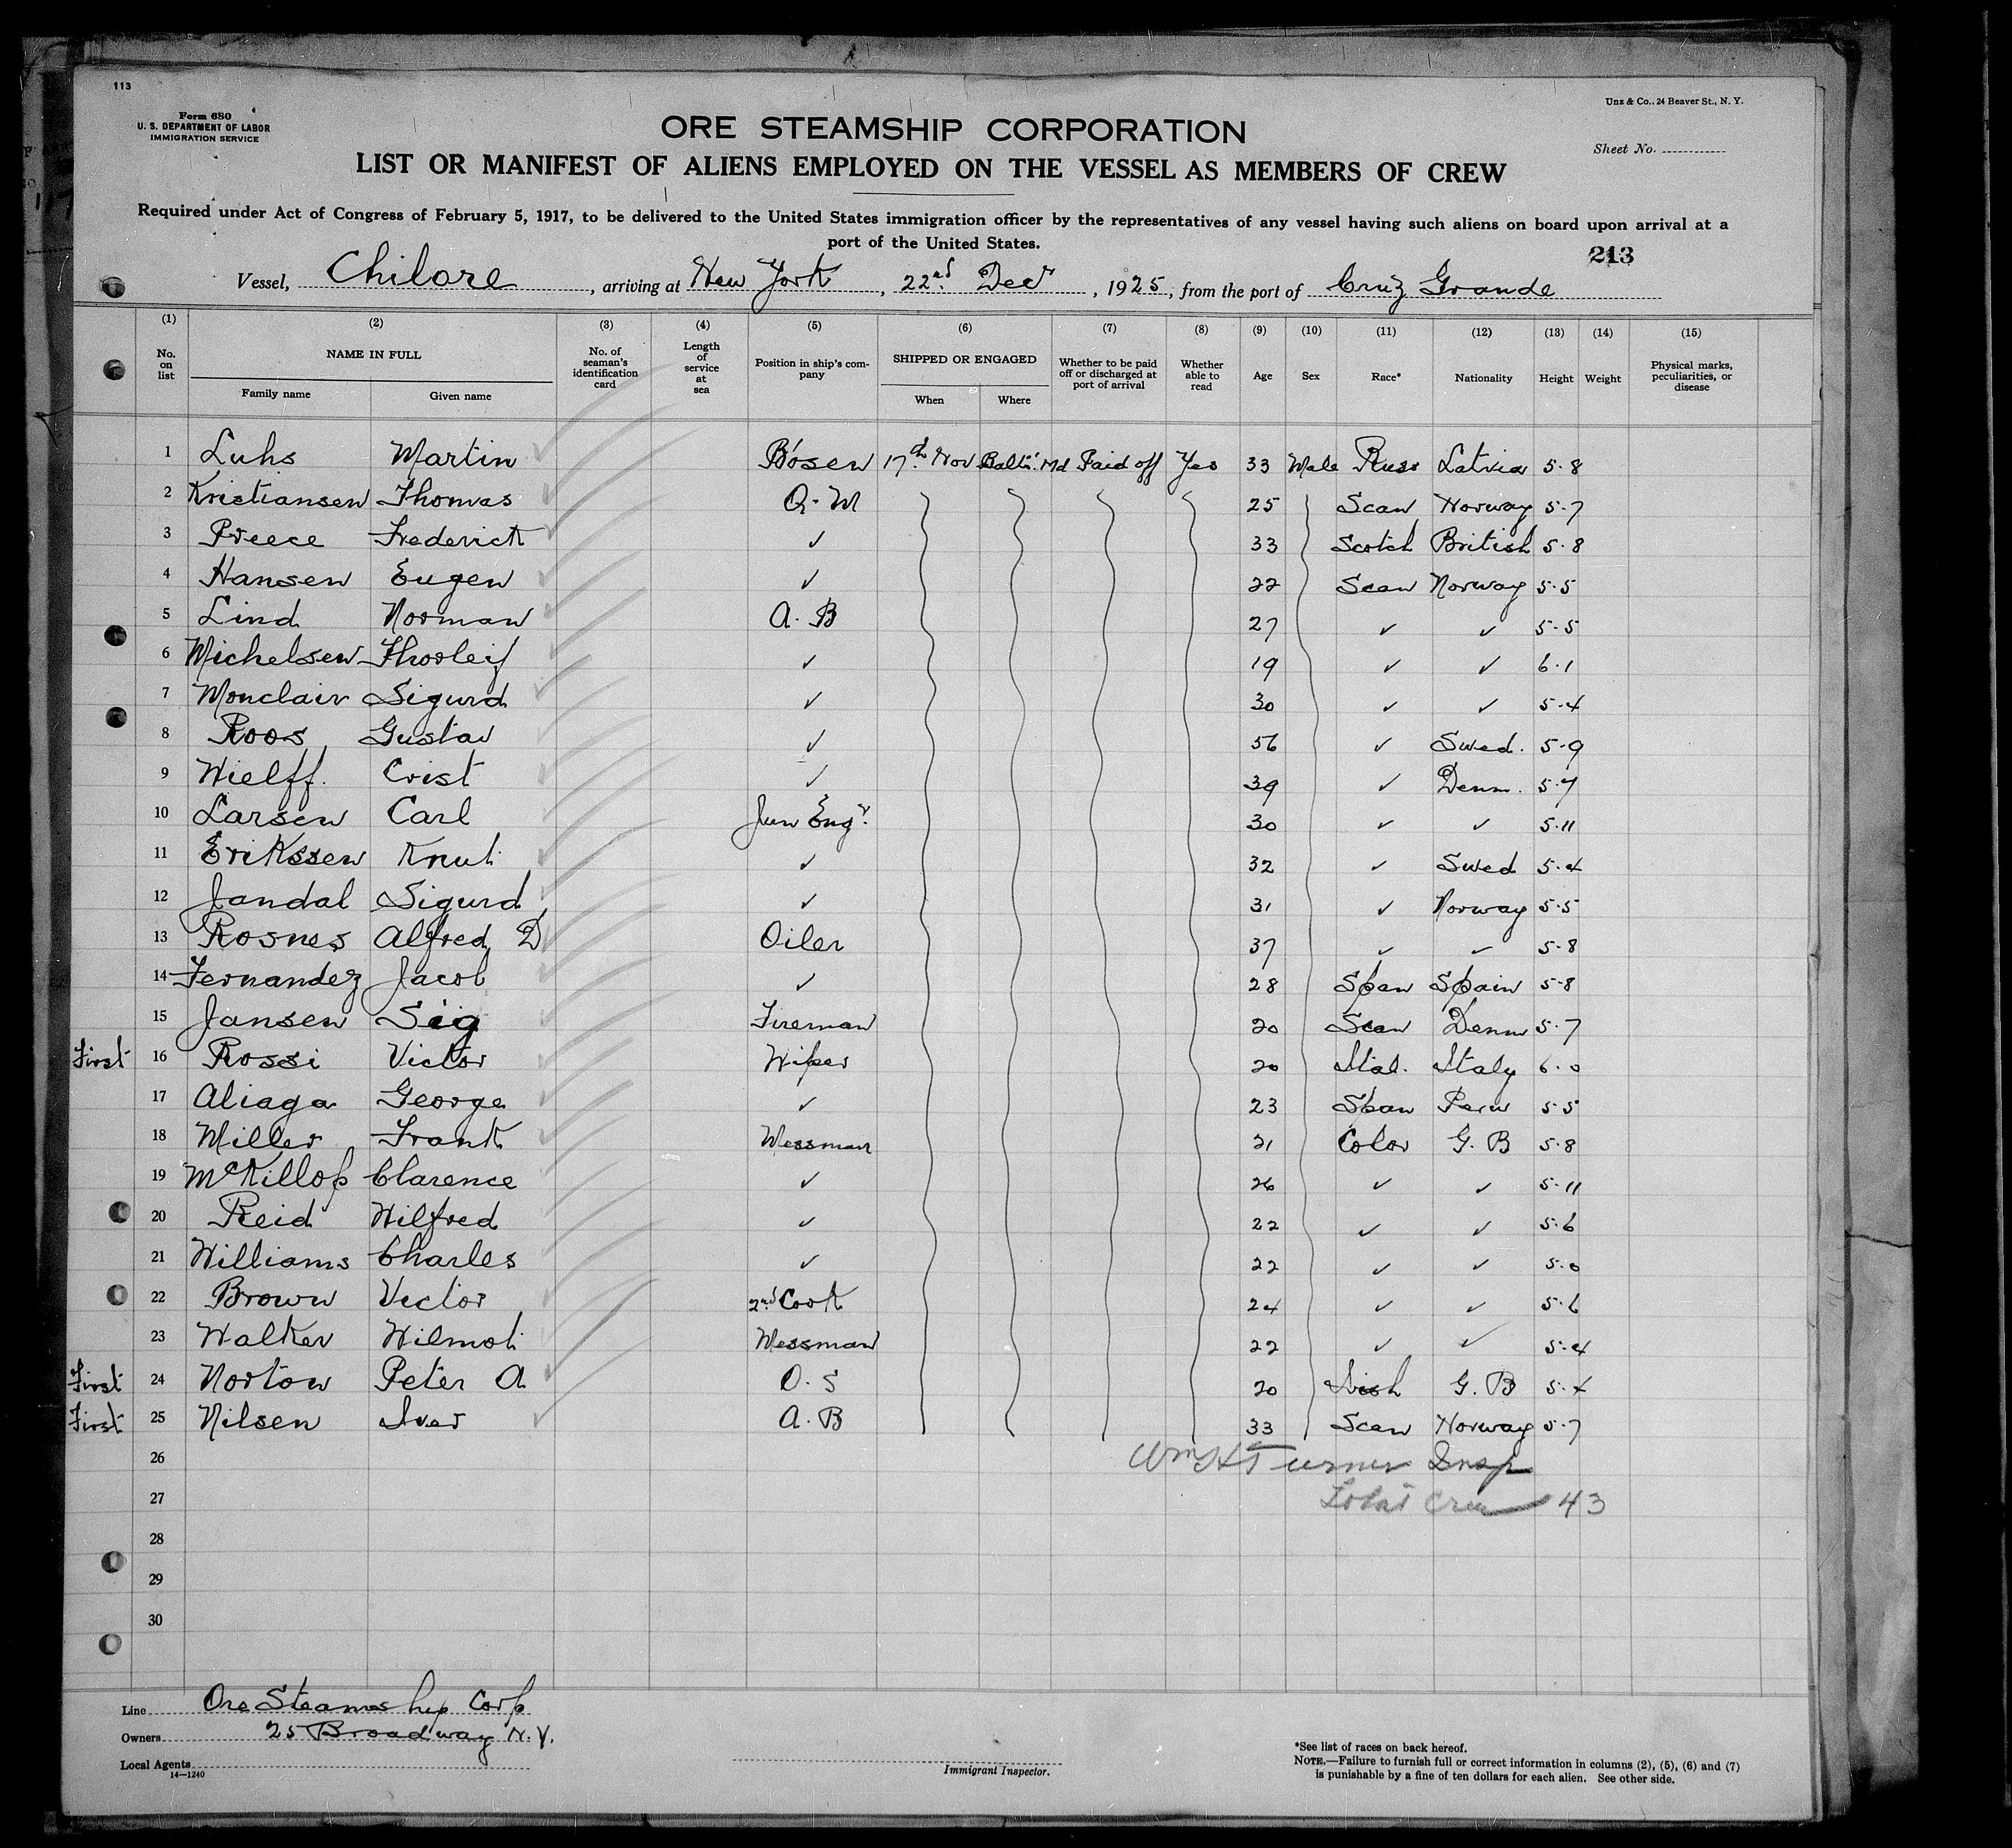 113
Form 680
U. S. DEPARTMENT OF LABOR
IMMIGRATION SERVICE
Unz & Co., 24 Beaver St., N. Y.
ORE STEAMSHIP CORPORATION
Sheet No.
LIST OR MANIFEST OF ALIENS EMPLOYED ON THE VESSEL AS MEMBERS OF CREW
Required under Act of Congress of February 5, 1917, to be delivered to the United States immigration officer by the representatives of any vessel having such aliens on board upon arrival at a
port of the United States.
213
Vessel, Chilore, arriving at New York, 22nd Decr, 1925, from the port of Cruz Grande
(1) (2) (3) (4) (5) (6) (7) (8) (9) (10) (11) (12) (13) (14) (15)
No. on list NAME IN FULL Family name Given name No. of seaman's identification card Length of service at sea Position in ship's company SHIPPED OR ENGAGED When Where Whether to be paid off or discharged at port of arrival Whether able to read Age Sex Race* Nationality Height Weight Physical marks, peculiarities, or disease
1 Luhs Martin ✓ Bosen 17th Nov Balto. Md Paid off Yes 33 Male Russ Latvia 5-8
2 Kristiansen Thomas ✓ Q-M 25 Scan Norway 5-7
3 Preece Frederick ✓ ✓ 33 Scotch British 5-8
4 Hansen Eugen ✓ ✓ 22 Scan Norway 5-5
5 Lind Norman ✓ A. B 27 ✓ ✓ 5-5
6 Michelsen Thorleif ✓ ✓ 19 ✓ ✓ 6-1
7 Monclair Sigurd ✓ ✓ 30 ✓ ✓ 5-4
8 Roos Gustav ✓ ✓ 56 ✓ Swed. 5-9
9 Wielff. Crist ✓ ✓ 39 ✓ Denm. 5-7
10 Larsen Carl ✓ Jun Engr. 30 ✓ ✓ 5-11
11 Erikssen Knut ✓ ✓ 32 ✓ Swed 5-4
12 Jandal Sigurd ✓ ✓ 31 ✓ Norway 5-5
13 Rosnes Alfred D ✓ Oiler 37 ✓ ✓ 5-8
14 Fernandez Jacob ✓ ✓ 28 Span Spain 5-8
15 Jansen Sig ✓ Fireman 20 Scan Denm 5-7
First 16 Rossi Victor ✓ Wiper 20 Ital. Italy 6-0
17 Aliaga George ✓ ✓ 23 Span Peru 5-5
18 Miller Frank ✓ Messman 21 Color G. B 5-8
19 McKillop Clarence ✓ ✓ 26 ✓ ✓ 5-11
20 Reid Wilfred ✓ ✓ 22 ✓ ✓ 5-6
21 Williams Charles ✓ ✓ 22 ✓ ✓ 5-0
22 Brown Victor ✓ 2nd Cook 24 ✓ ✓ 5-6
23 Walker Wilmot ✓ Messman 22 ✓ ✓ 5-4
First 24 Norton Peter A ✓ O. S 20 Irish G. B 5-4
First 25 Nilsen Iver ✓ A. B 33 Scan Norway 5-7
26 Wm H Turner Insp
27 Total Crew 43
28
29
30
Line Ore Steamship Corp
Owners 25 Broadway N. Y.
Local Agents
14—1240
Immigrant Inspector.
*See list of races on back hereof.
NOTE.—Failure to furnish full or correct information in columns (2), (5), (6) and (7)
is punishable by a fine of ten dollars for each alien. See other side.